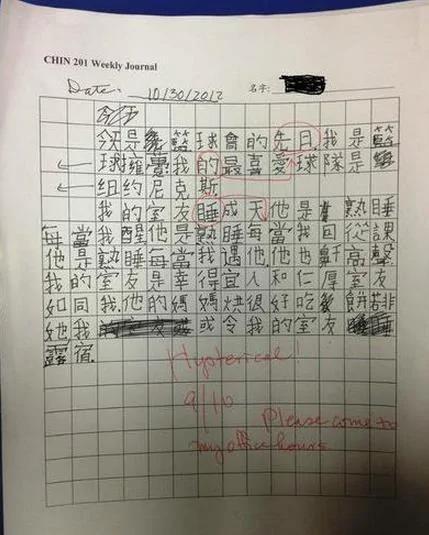 CHIN 201 Weekly Journal
Date: 10/30/2012 名字:
今是籃球會的先日我是籃
球擁躉我的最喜愛球隊是
纽约尼克斯
我的室友睡成天他是熟睡
每當我醒他是熟睡每當我回從課
他是熟睡每當我遇他他也鼾高聲
我的室友是幸得宜人和仁厚室友
如同我.他的媽媽烘很好吃餅若非
她我或令我的室友
露宿.
Hysterical!
9/10
Please come to
my office hours